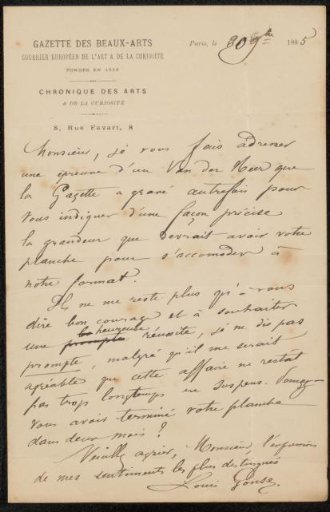 GAZETTE DES BEAUX-ARTS
COURRIER EUROPÉEN DE L'ART & DE LA CURIOSITÉ
FONDÉE EN 1859
CHRONIQUE DES ARTS
& DE LA CURIOSITÉ
8, Rue Favart, 8
Paris, le 30 9bre 1885
Monsieur, je vous fais adresser
une épreuve d'un Van der Meer que
la Gazette a gravé autrefois pour
vous indiquer d'une façon précise
la grandeur que devrait avoir votre
planche pour s'accomoder à
notre format.
Il ne me reste plus qu'à vous
dire bon courage et à souhaiter
heureuse
une prompte réussite, je ne dis pas
prompte, malgré qu'il me serait
agréable que cette affaire ne restat
pas trop longtemps en suspens. Pensez-
vous avoir terminé votre planche
dans deux mois?
Veuillez agréer, Monsieur, l'expression
de mes sentiments les plus distingués
Louis Gonse